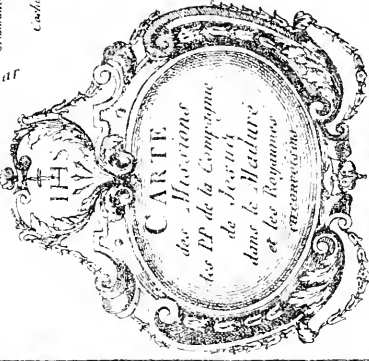 IHS
CARTE
des Missions
des PP de la Compagnie
de Jesus
dans le Maduré
et les Royaumes
circonvoisins